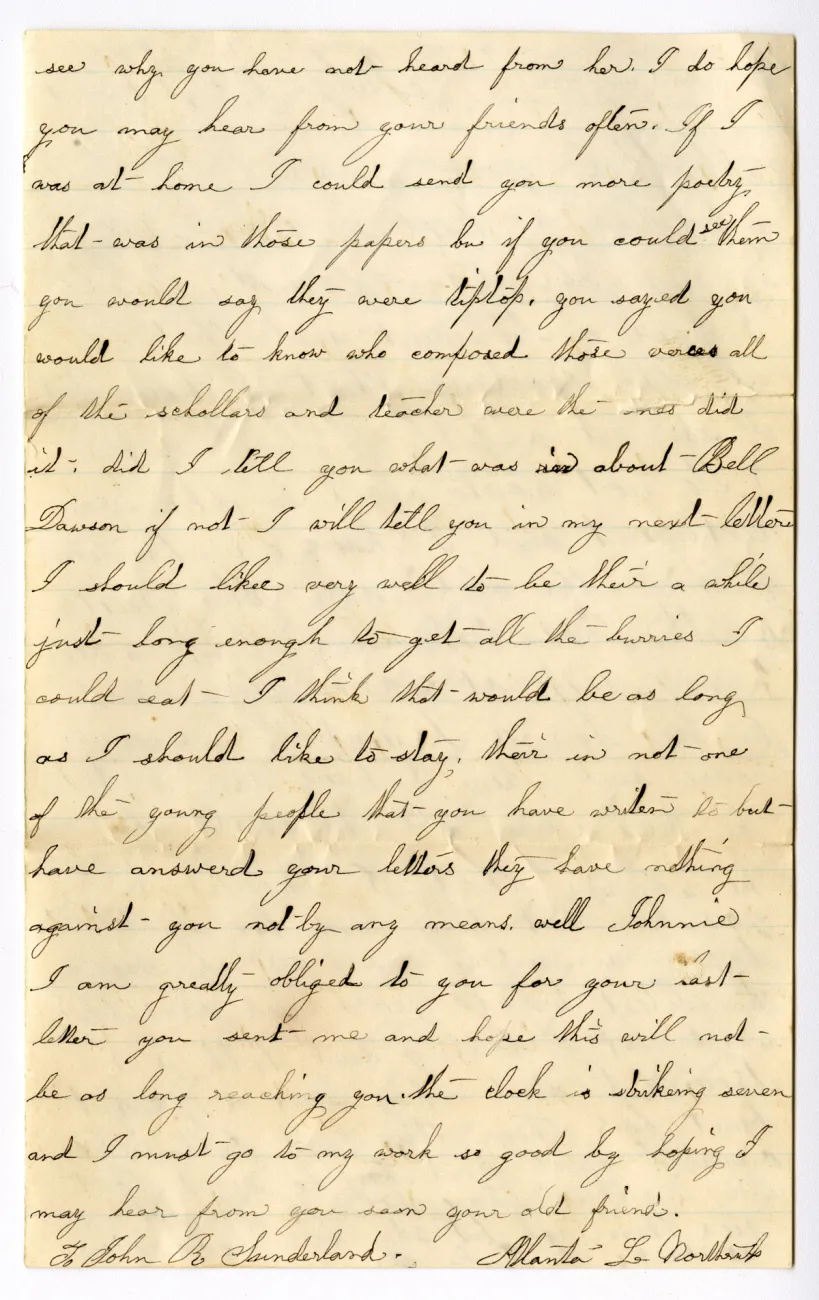 see why you have not heard from her. I do hope
you may hear from your friends often. If I
was at home I could send you more poetry
that was in those papers bu if you could see them
you would say they were tiptop. you sayed you
would like to know who composed those verces all
of the schollars and teacher were the ones did
it. did I tell you what was in about Bell
Dawson if not I will tell you in my next letter
I should likee very well to be their a while
just long enough to get all the burries I
could eat I think that would be as long
as I should like to stay. their in not one
of the young people that you have writen to but
have answerd your letters they have nothing
against you not by any means. well Johnnie
I am greatly obliged to you for your last
letter you sent me and hope this will not
be as long reaching you. the clock is strikeing seven
and I must go to my work so good by hoping I
may hear from you soon your old friend.
To John R Sunderland. Atlanta L